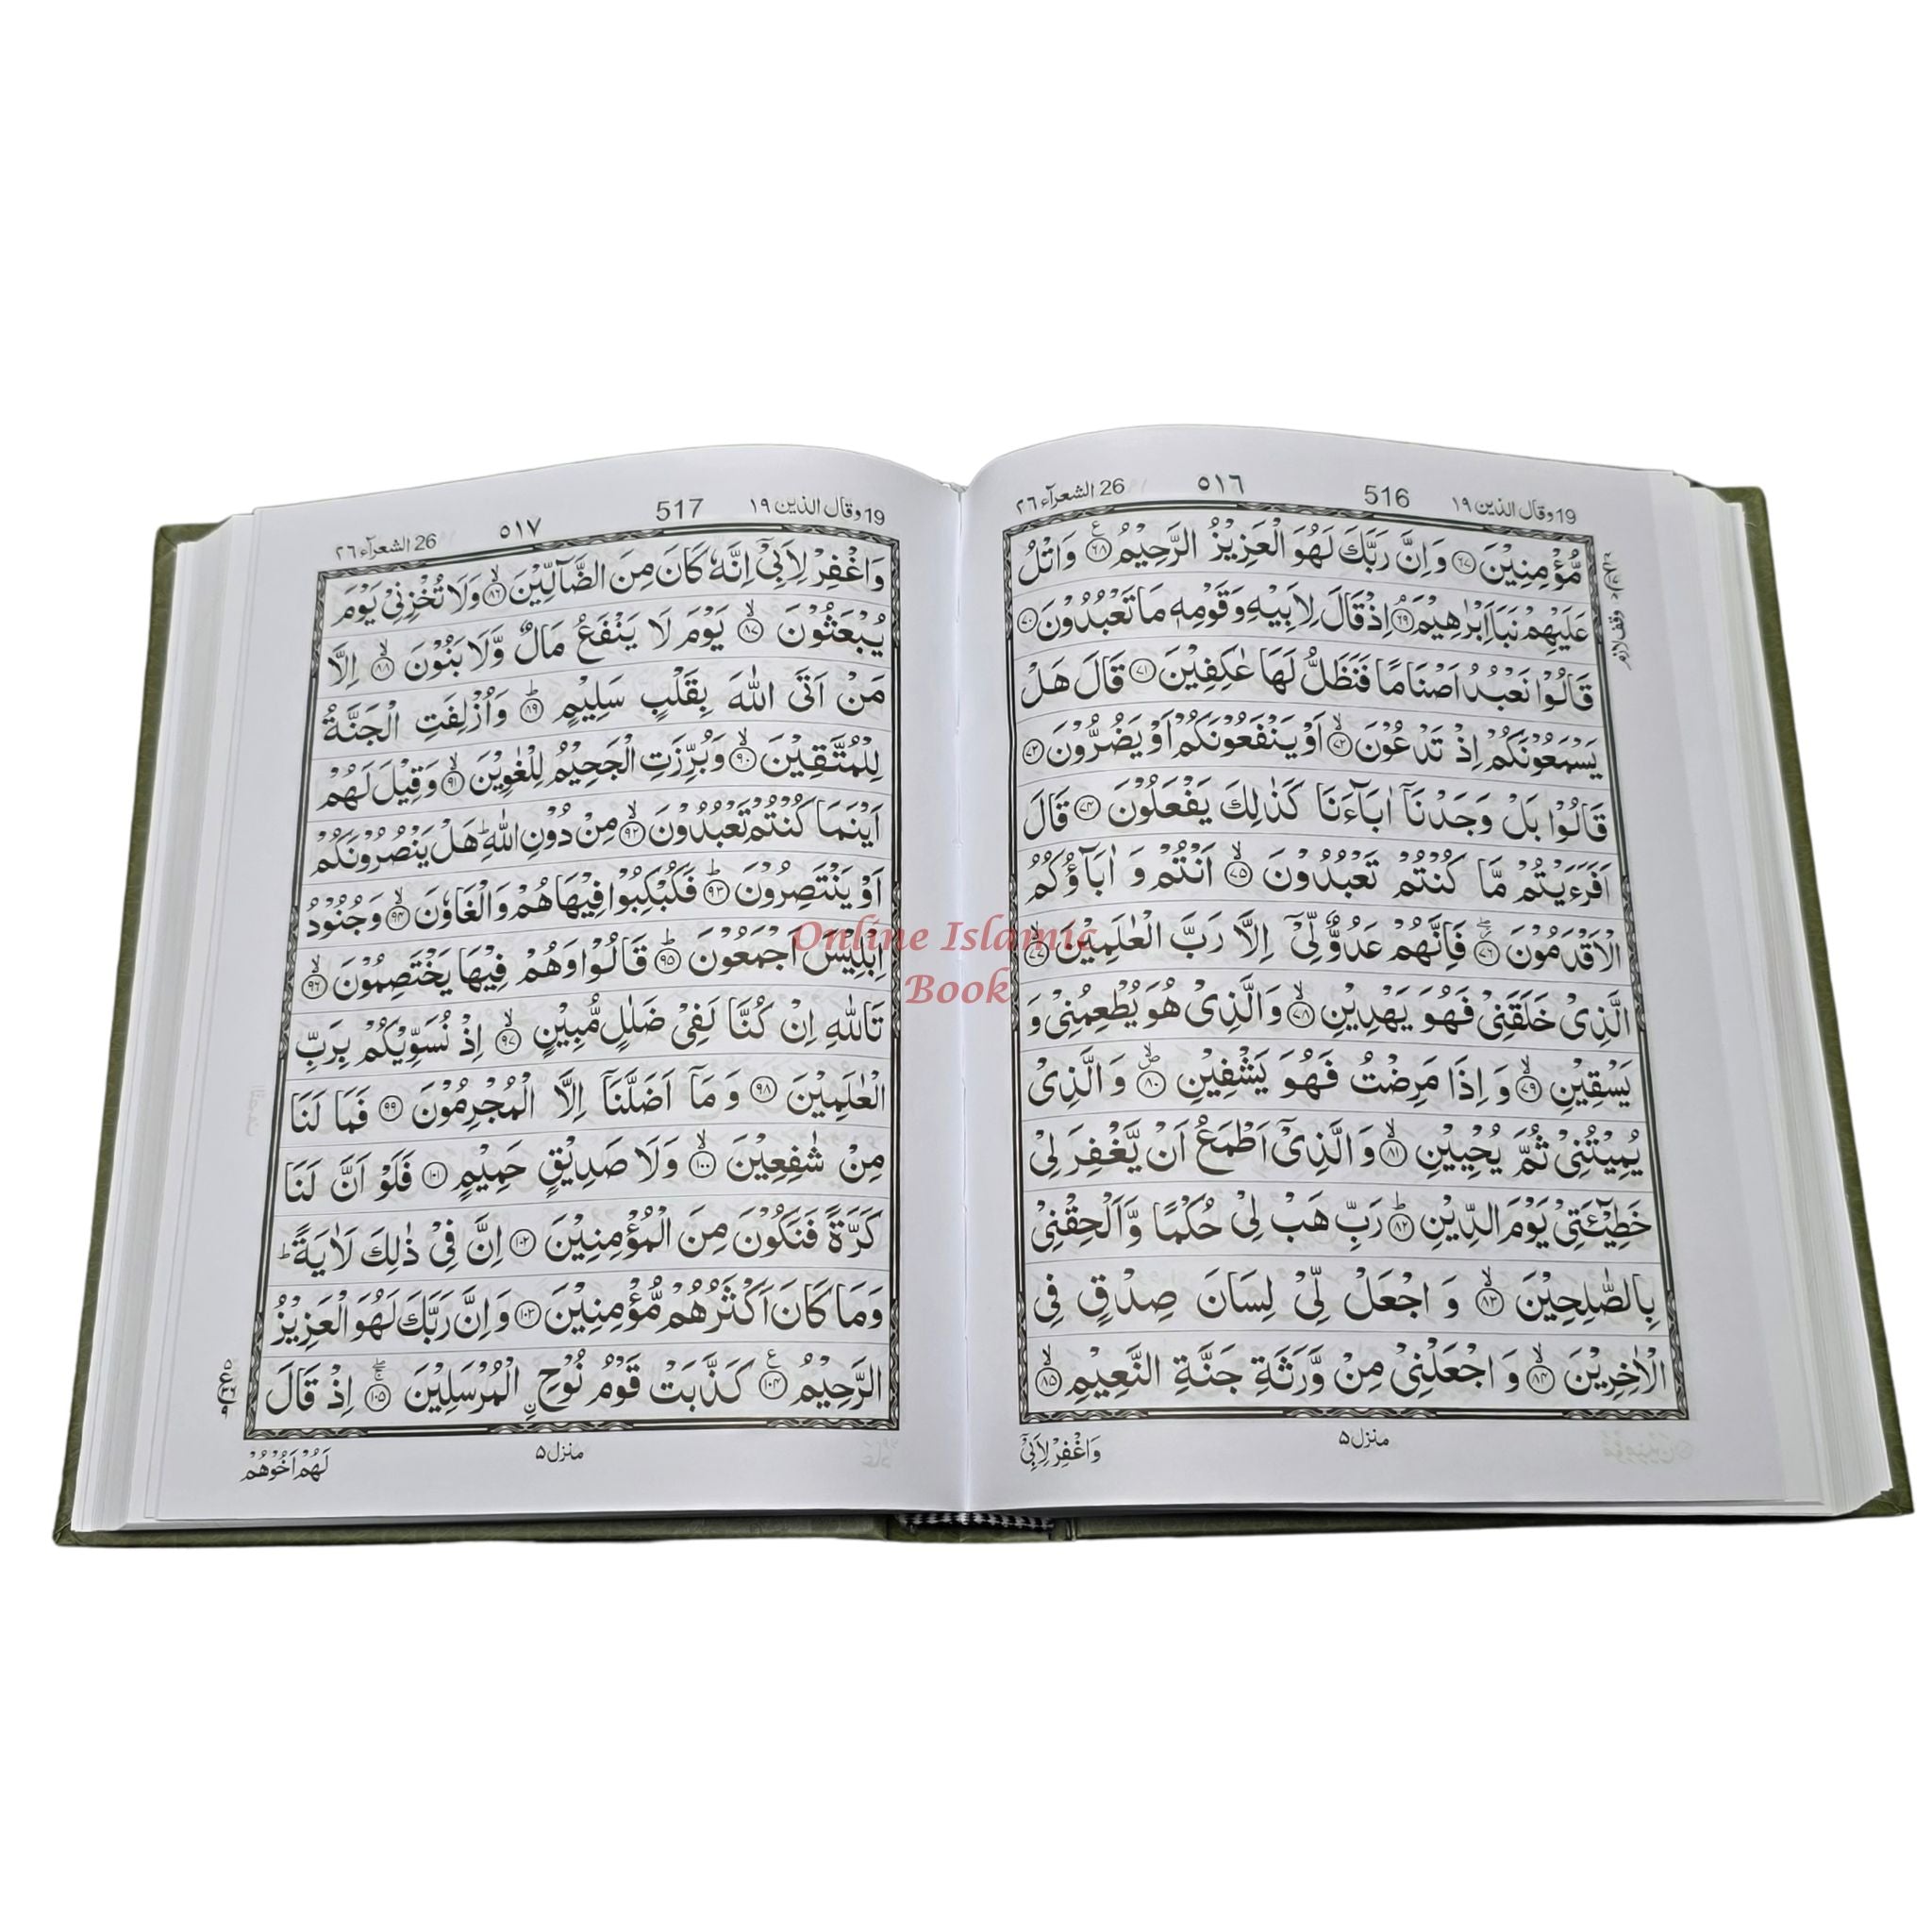 19 وقال الذين ١٩ 516 ٥١٦ 26 الشعرآء ٢٦
مُّؤْمِنِيْنَ ﴿٦٧﴾ وَاِنَّ رَبَّكَ لَهُوَ الْعَزِيْزُ الرَّحِيْمُ ﴿٦٨﴾ۧ وَاتْلُ
عَلَيْهِمْ نَبَاَ اِبْرٰهِيْمَ ﴿٦٩﴾ۘ اِذْ قَالَ لِاَبِيْهِ وَقَوْمِهٖ مَا تَعْبُدُوْنَ ﴿٧٠﴾
قَالُوْا نَعْبُدُ اَصْنَامًا فَنَظَلُّ لَهَا عٰكِفِيْنَ ﴿٧١﴾ قَالَ هَلْ
يَسْمَعُوْنَكُمْ اِذْ تَدْعُوْنَ ﴿٧٢﴾ۙ اَوْ يَنْفَعُوْنَكُمْ اَوْ يَضُرُّوْنَ ﴿٧٣﴾
قَالُوْا بَلْ وَجَدْنَآ اٰبَآءَنَا كَذٰلِكَ يَفْعَلُوْنَ ﴿٧٤﴾ قَالَ
اَفَرَءَيْتُمْ مَّا كُنْتُمْ تَعْبُدُوْنَ ﴿٧٥﴾ۙ اَنْتُمْ وَ اٰبَآؤُكُمُ
الْاَقْدَمُوْنَ ﴿٧٦﴾ فَاِنَّهُمْ عَدُوٌّ لِّيْٓ اِلَّا رَبَّ الْعٰلَمِيْنَ ﴿٧٧﴾ۙ
الَّذِيْ خَلَقَنِيْ فَهُوَ يَهْدِيْنِ ﴿٧٨﴾ۙ وَالَّذِيْ هُوَ يُطْعِمُنِيْ وَ
يَسْقِيْنِ ﴿٧٩﴾ۙ وَ اِذَا مَرِضْتُ فَهُوَ يَشْفِيْنِ ﴿٨٠﴾ۙ وَ الَّذِيْ
يُمِيْتُنِيْ ثُمَّ يُحْيِيْنِ ﴿٨١﴾ۙ وَ الَّذِيْٓ اَطْمَعُ اَنْ يَّغْفِرَ لِيْ
خَطِيْٓئَتِيْ يَوْمَ الدِّيْنِ ﴿٨٢﴾ؕ رَبِّ هَبْ لِيْ حُكْمًا وَّاَلْحِقْنِيْ
بِالصّٰلِحِيْنَ ﴿٨٣﴾ۙ وَ اجْعَلْ لِّيْ لِسَانَ صِدْقٍ فِي
الْاٰخِرِيْنَ ﴿٨٤﴾ۙ وَ اجْعَلْنِيْ مِنْ وَّرَثَةِ جَنَّةِ النَّعِيْمِ ﴿٨٥﴾ۙ
وقف لازم
منزل ٥
وَاغْفِرْ لِاَبِيْٓ
19 وقال الذين ١٩ 517 ٥١٧ 26 الشعرآء ٢٦
وَاغْفِرْ لِاَبِيْٓ اِنَّهٗ كَانَ مِنَ الضَّآلِّيْنَ ﴿٨٦﴾ۙ وَلَا تُخْزِنِيْ يَوْمَ
يُبْعَثُوْنَ ﴿٨٧﴾ۙ يَوْمَ لَا يَنْفَعُ مَالٌ وَّلَا بَنُوْنَ ﴿٨٨﴾ۙ اِلَّا
مَنْ اَتَى اللّٰهَ بِقَلْبٍ سَلِيْمٍ ﴿٨٩﴾ؕ وَاُزْلِفَتِ الْجَنَّةُ
لِلْمُتَّقِيْنَ ﴿٩٠﴾ۙ وَبُرِّزَتِ الْجَحِيْمُ لِلْغٰوِيْنَ ﴿٩١﴾ۙ وَقِيْلَ لَهُمْ
اَيْنَمَا كُنْتُمْ تَعْبُدُوْنَ ﴿٩٢﴾ۙ مِنْ دُوْنِ اللّٰهِ ؕ هَلْ يَنْصُرُوْنَكُمْ
اَوْ يَنْتَصِرُوْنَ ﴿٩٣﴾ؕ فَكُبْكِبُوْا فِيْهَا هُمْ وَالْغَاوٗنَ ﴿٩٤﴾ۙ وَجُنُوْدُ
اِبْلِيْسَ اَجْمَعُوْنَ ﴿٩٥﴾ؕ قَالُوْا وَهُمْ فِيْهَا يَخْتَصِمُوْنَ ﴿٩٦﴾ۙ
تَاللّٰهِ اِنْ كُنَّا لَفِيْ ضَلٰلٍ مُّبِيْنٍ ﴿٩٧﴾ۙ اِذْ نُسَوِّيْكُمْ بِرَبِّ
الْعٰلَمِيْنَ ﴿٩٨﴾ وَ مَآ اَضَلَّنَآ اِلَّا الْمُجْرِمُوْنَ ﴿٩٩﴾ فَمَا لَنَا
مِنْ شٰفِعِيْنَ ﴿١٠٠﴾ۙ وَلَا صَدِيْقٍ حَمِيْمٍ ﴿١٠١﴾ فَلَوْ اَنَّ لَنَا
كَرَّةً فَنَكُوْنَ مِنَ الْمُؤْمِنِيْنَ ﴿١٠٢﴾ اِنَّ فِيْ ذٰلِكَ لَاٰيَةً ؕ
وَمَا كَانَ اَكْثَرُهُمْ مُّؤْمِنِيْنَ ﴿١٠٣﴾ وَاِنَّ رَبَّكَ لَهُوَ الْعَزِيْزُ
الرَّحِيْمُ ﴿١٠٤﴾ۧ كَذَّبَتْ قَوْمُ نُوْحِ ۨ الْمُرْسَلِيْنَ ﴿١٠٥﴾ اِذْ قَالَ
منزل ٥
لَهُمْ اَخُوْهُمْ
Online Islamic
Book